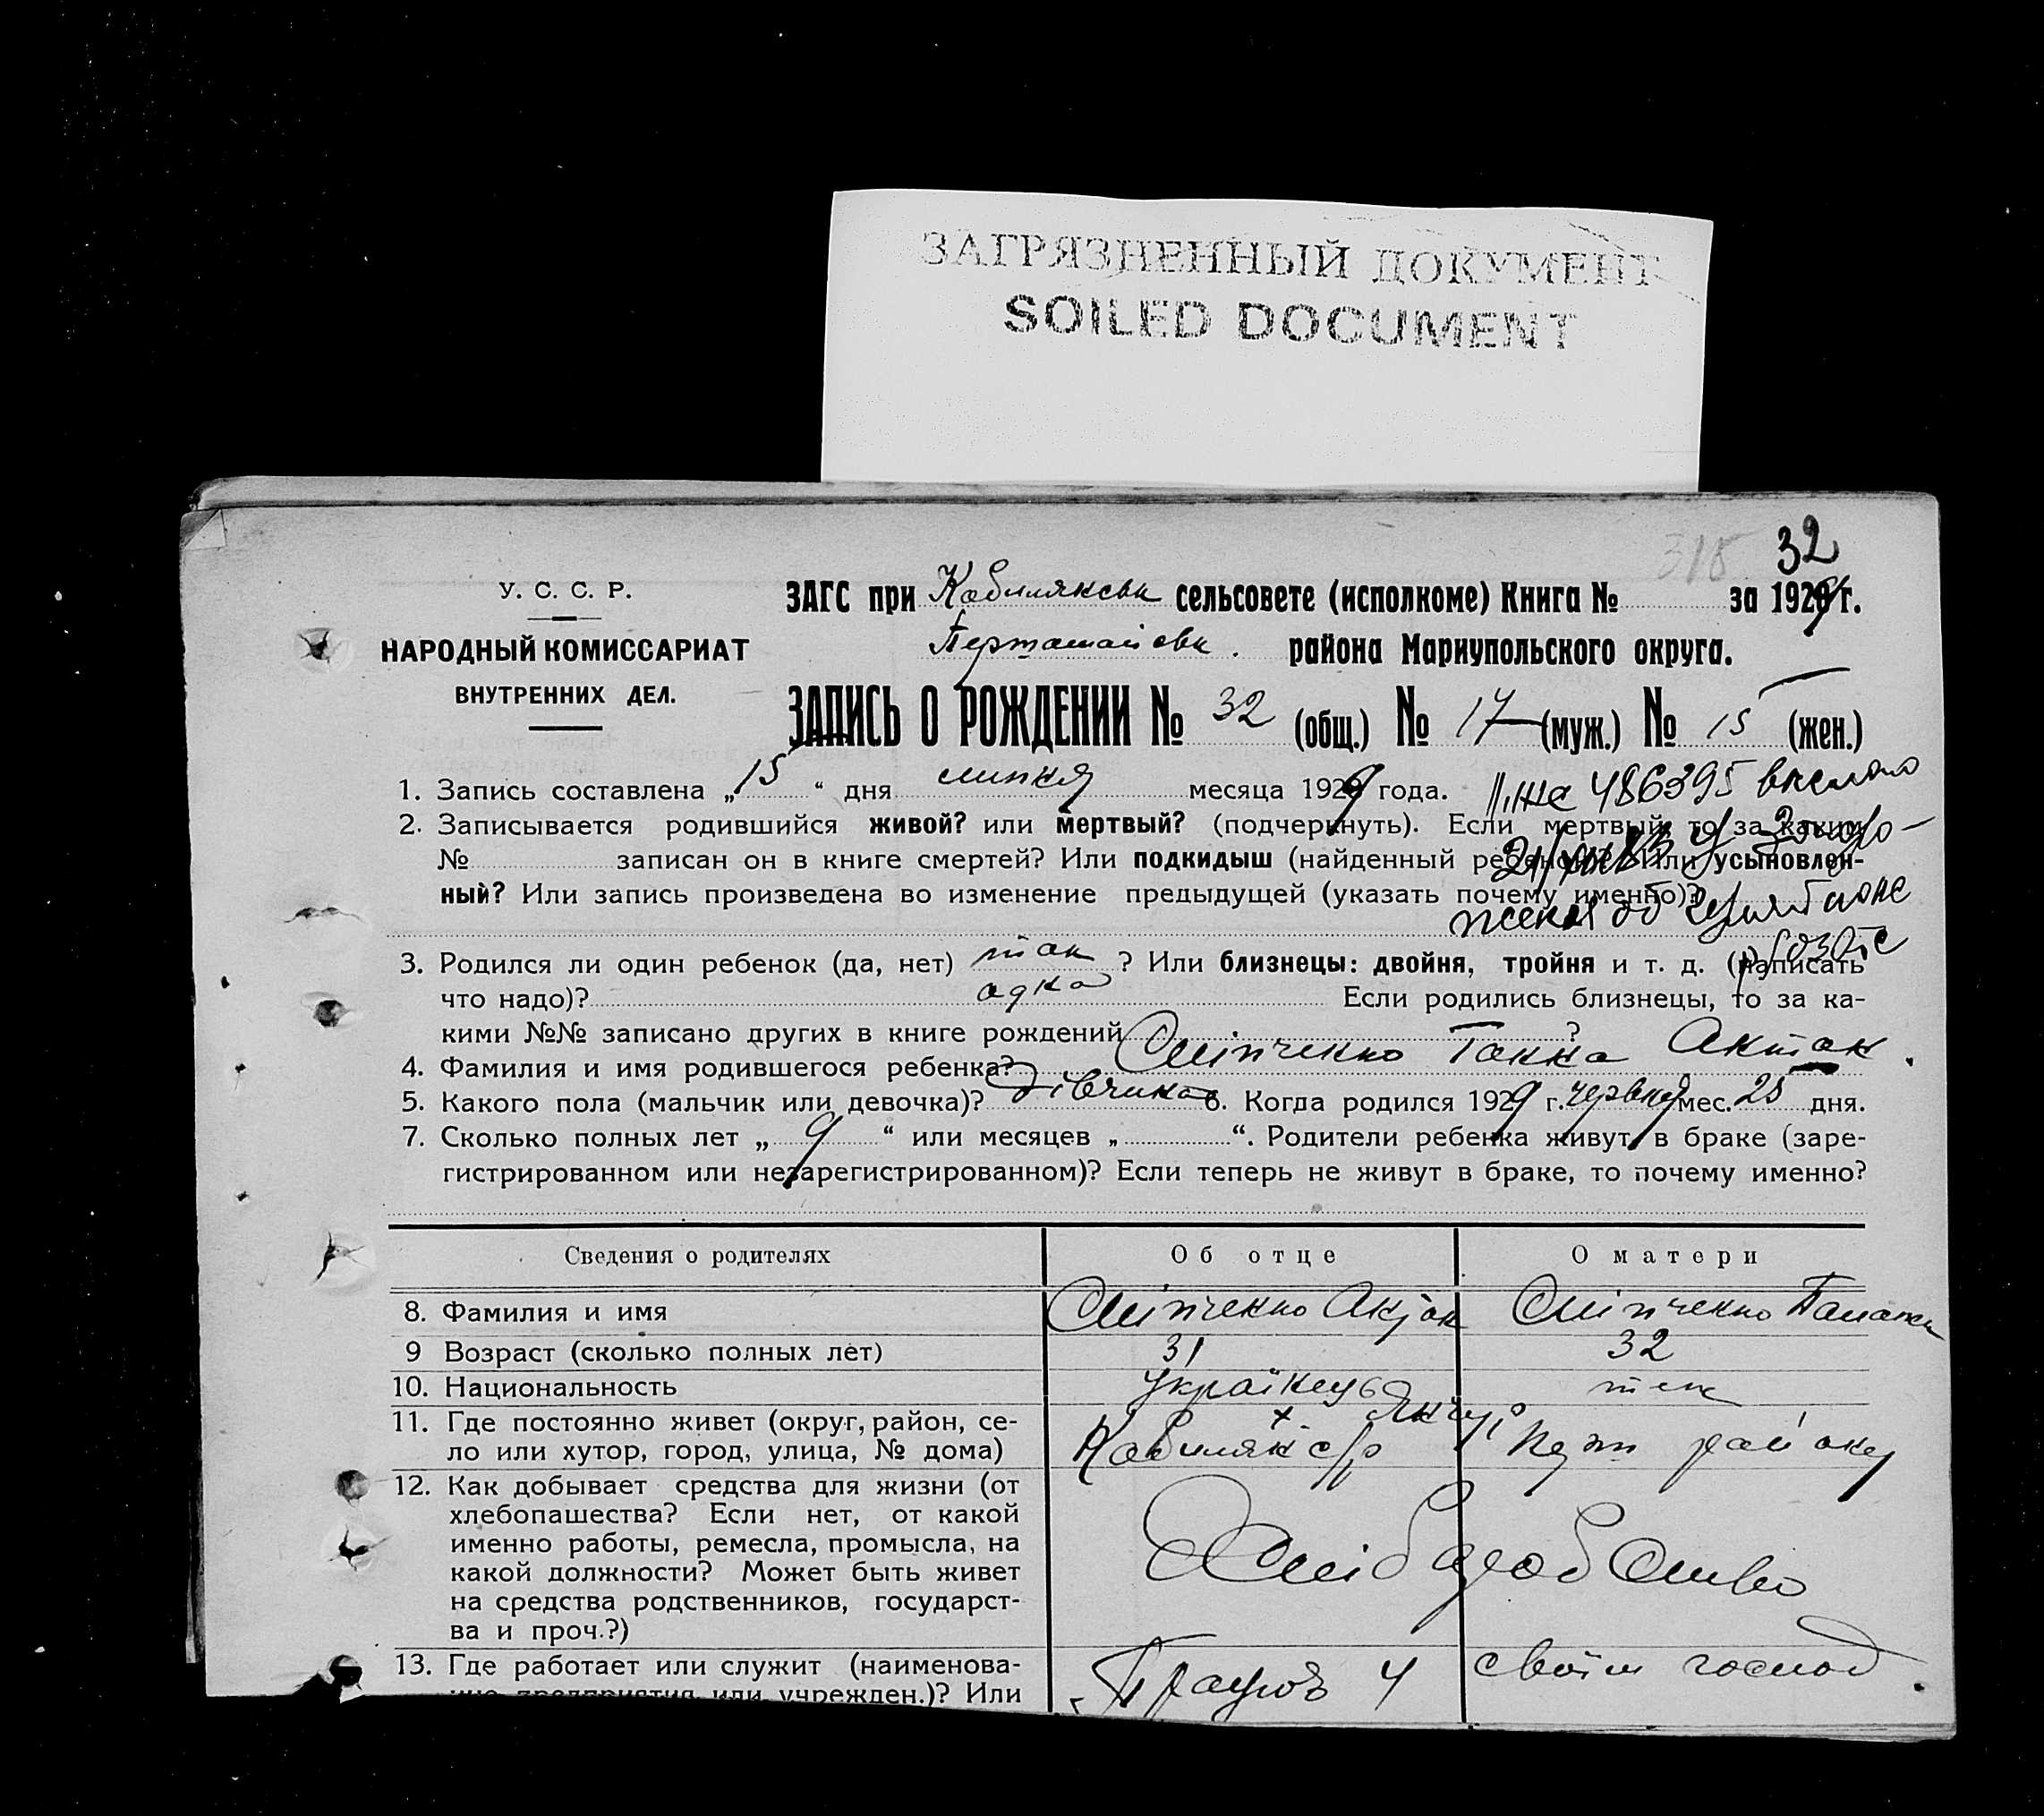 ЗАГРЯЗНЕННЫЙ ДОКУМЕНТ
SOILED DOCUMENT
315 32
У. С. С. Р.
ЗАГС при сельсовете (исполкоме) Книга № за 1929 г.
НАРОДНЫЙ КОМИССАРИАТ
района Мариупольского округа.
ВНУТРЕННИХ ДЕЛ.
ЗАПИСЬ О РОЖДЕНИИ № 32 (общ.) № 17 (муж.) № 15 (жен.)
1. Запись составлена „15“ дня липня месяца 1929 года.
486395
2. Записывается родившийся живой? или мертвый? (подчеркнуть). Если мертвый, то за каким
№ записан он в книге смертей? Или подкидыш (найденный ребенок)? Или усыновлен-
ный? Или запись произведена во изменение предыдущей (указать почему именно)?
3. Родился ли один ребенок (да, нет) так ? Или близнецы: двойня, тройня и т. д. (написать
что надо)? одна Если родились близнецы, то за ка-
кими №№ записано других в книге рождений ?
4. Фамилия и имя родившегося ребенка? Ганна
5. Какого пола (мальчик или девочка)? дівчинка 6. Когда родился 1929 г. червня мес. 25 дня.
7. Сколько полных лет „ “ или месяцев „ “. Родители ребенка живут в браке (заре-
гистрированном или незарегистрированном)? Если теперь не живут в браке, то почему именно?
Сведения о родителях Об отце О матери
8. Фамилия и имя
9 Возраст (сколько полных лет) 31 32
10. Национальность українець теж
11. Где постоянно живет (округ, район, се-
ло или хутор, город, улица, № дома) с/р
12. Как добывает средства для жизни (от
хлебопашества? Если нет, от какой
именно работы, ремесла, промысла, на
какой должности? Может быть живет
на средства родственников, государст-
ва и проч.?)
Хліборобство
13. Где работает или служит (наименова-
ние предприятия или учрежден.)? Или
Працює у своїм господ